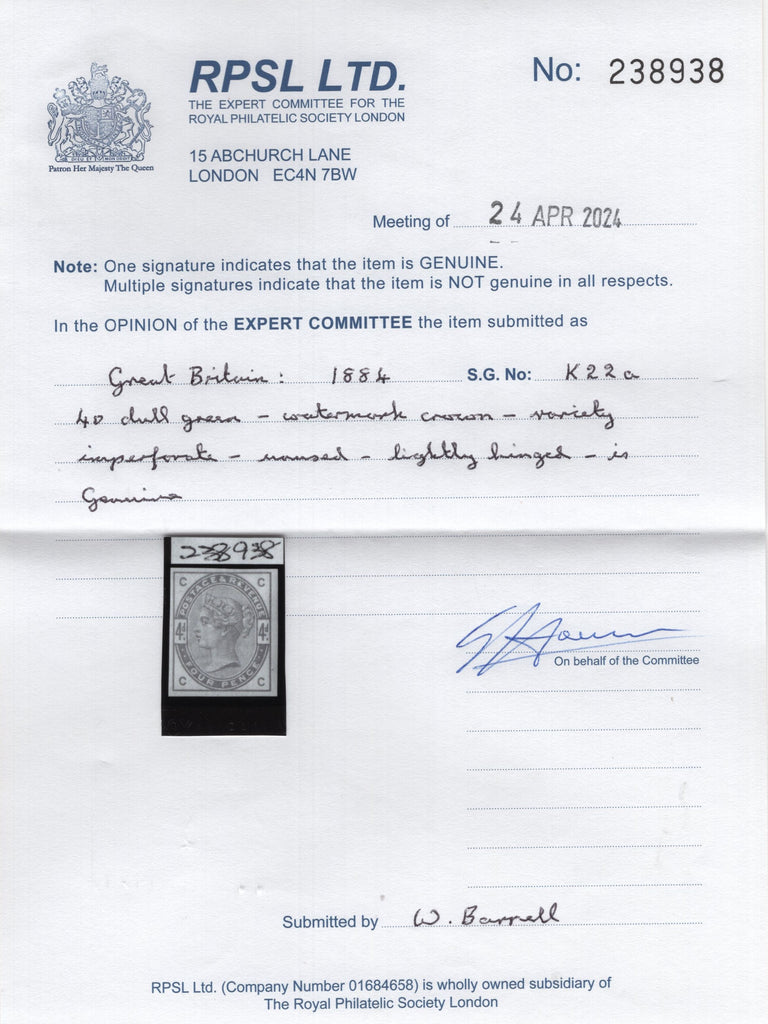 RPSL LTD.
THE EXPERT COMMITTEE FOR THE
ROYAL PHILATELIC SOCIETY LONDON
15 ABCHURCH LANE
LONDON EC4N 7BW
Patron Her Majesty The Queen
No: 238938
Meeting of 24 APR 2024
Note: One signature indicates that the item is GENUINE.
Multiple signatures indicate that the item is NOT genuine in all respects.
In the OPINION of the EXPERT COMMITTEE the item submitted as
Great Britain: 1884 S.G. No: K22a
4D dull green - watermark crown - variety
imperforate - unused - lightly hinged - is
Genuine
238938
C C
POSTAGE & REVENUE
4D 4D
FOUR PENCE
C C
On behalf of the Committee
Submitted by W. Barrell
RPSL Ltd. (Company Number 01684658) is wholly owned subsidiary of
The Royal Philatelic Society London